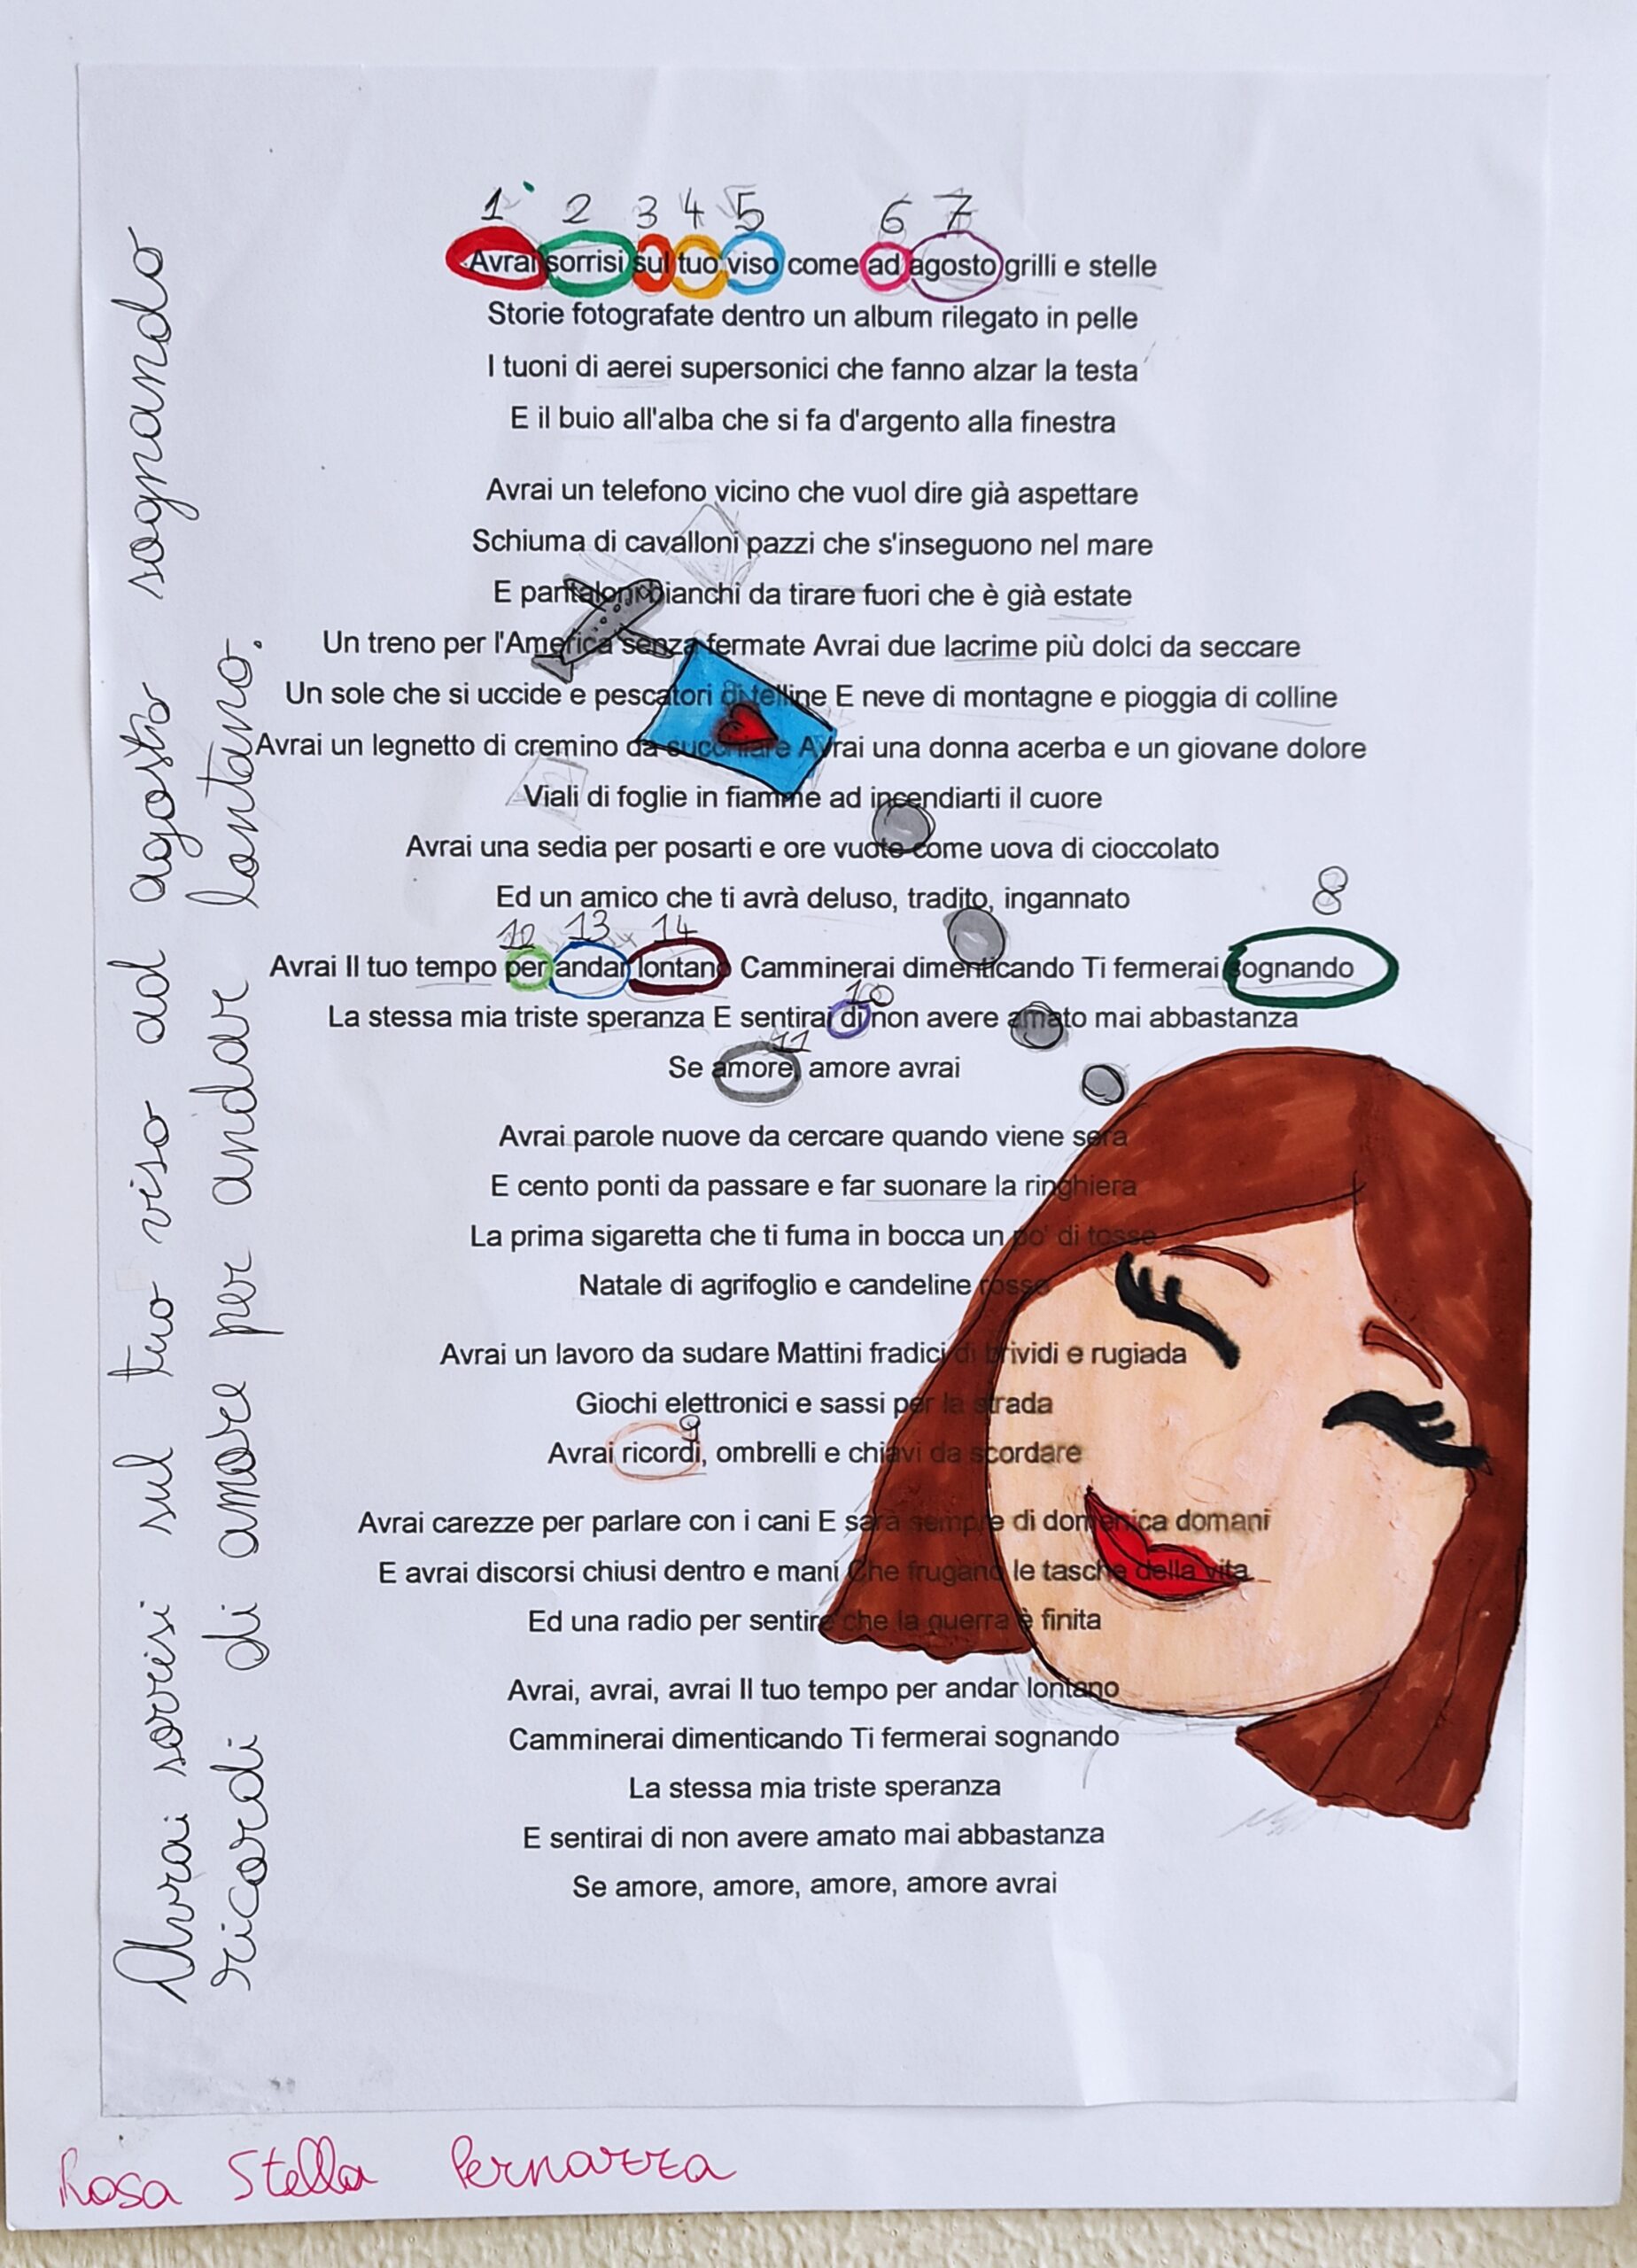 1 2 3 4 5 6 7
Avrai sorrisi sul tuo viso come ad agosto grilli e stelle
Storie fotografate dentro un album rilegato in pelle
I tuoni di aerei supersonici che fanno alzar la testa
E il buio all'alba che si fa d'argento alla finestra
Avrai un telefono vicino che vuol dire già aspettare
Schiuma di cavalloni pazzi che s'inseguono nel mare
E pantaloni bianchi da tirare fuori che è già estate
Un treno per l'America senza fermate Avrai due lacrime più dolci da seccare
Un sole che si uccide e pescatori di telline E neve di montagne e pioggia di colline
Avrai un legnetto di cremino da succhiare Avrai una donna acerba e un giovane dolore
Viali di foglie in fiamme ad incendiarti il cuore
Avrai una sedia per posarti e ore vuote come uova di cioccolato
Ed un amico che ti avrà deluso, tradito, ingannato
12 13 14 8
Avrai Il tuo tempo per andar lontano Camminerai dimenticando Ti fermerai sognando
10
La stessa mia triste speranza E sentirai di non avere amato mai abbastanza
11
Se amore, amore avrai
Avrai parole nuove da cercare quando viene sera
E cento ponti da passare e far suonare la ringhiera
La prima sigaretta che ti fuma in bocca un po' di tosse
Natale di agrifoglio e candeline rosse
Avrai un lavoro da sudare Mattini fradici di brividi e rugiada
Giochi elettronici e sassi per la strada
9
Avrai ricordi, ombrelli e chiavi da scordare
Avrai carezze per parlare con i cani E sarà sempre di domenica domani
E avrai discorsi chiusi dentro e mani Che frugano le tasche della vita
Ed una radio per sentire che la guerra è finita
Avrai, avrai, avrai Il tuo tempo per andar lontano
Camminerai dimenticando Ti fermerai sognando
La stessa mia triste speranza
E sentirai di non avere amato mai abbastanza
Se amore, amore, amore, amore avrai
Avrai sorrisi sul tuo viso ad agosto sognando
ricordi di amore per andar lontano.
Rosa Stella Pernazza